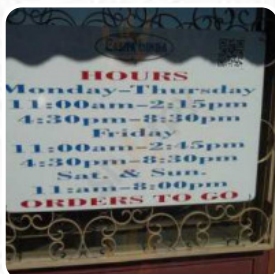 HOURS
Monday-Thursday
11:00am-2:15pm
4:30pm-8:30pm
Friday
11:00am-2:45pm
4:30pm-8:30pm
Sat. & Sun.
11:am-8:00pm
ORDERS TO GO